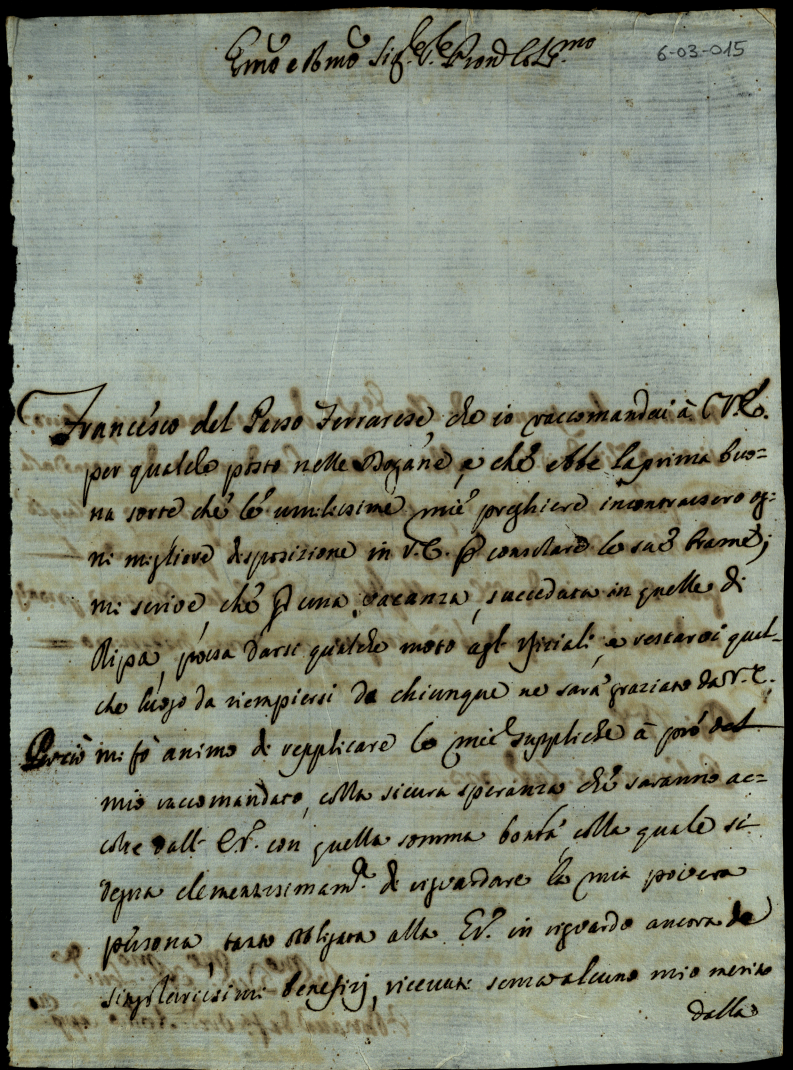 Emõ e Rmõ Sig.re P.re Pron Col.mo
6-03-015
Francesco del Passo Ferrarese, che io raccomandai à V.E.
per qualche posto nelle Dogane, e che ebbe la prima buo=
na sorte che le umilissime mie preghiere incontrassero og=
ni migliore disposizione in V.E. p consolare le sue brame;
mi scrive, che p una vacanza, succeduta in quelle di
Ripa, possa darsi qualche moto agl' Ufficiali, e restarvi qual=
che luogo da riempiersi da chiunque ne sarà graziato da V.E.
Perciò mi fò animo di repplicare le mie suppliche à prò del
mio raccomandato, colla sicura speranza che saranno ac=
colte dall' E.V. con quella somma bontà, colla quale si
degna clementissimam.te di riguardare la mia povera
persona tanto obbligata alla E.V. in riguardo ancora de
singolarissimi benefizj, ricevuti senza alcuno mio merito
dalla